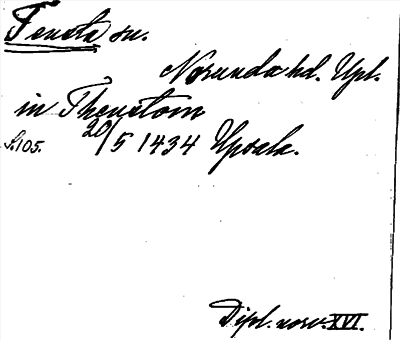 Tensta sn.
Norunda hd. Upl.
in Thenstom
s. 105. 20/5 1434 Upsala.
Dipl. norv. XVI.